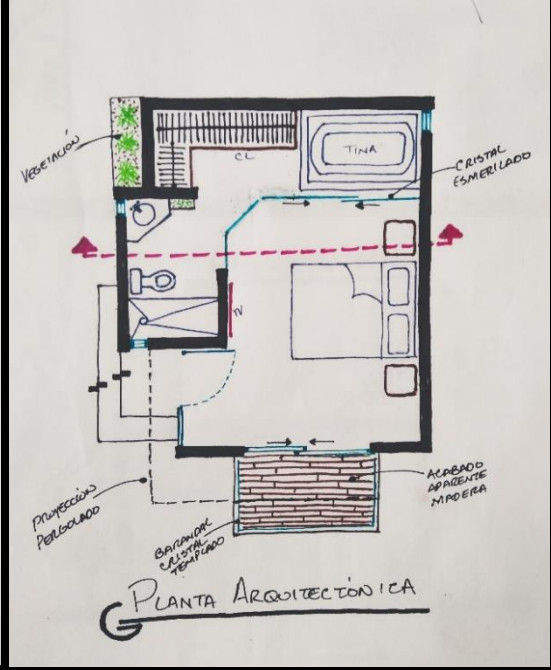 VEGETACIÓN
CL
TINA
CRISTAL
ESMERILADO
TV
PROYECCIÓN
PERGOLADO
BARANDAL
CRISTAL
TEMPLADO
ACABADO
APARENTE
MADERA
PLANTA ARQUITECTÓNICA